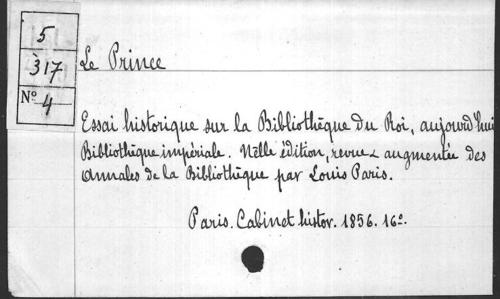 5
317
N° 4
Le Prince
Essai historique sur la Bibliothèque du Roi, aujourd'hui
Bibliothèque impériale. Nelle édition, revue & augmentée des
Annales de la Bibliothèque par Louis Paris.
Paris. Cabinet histor. 1856. 16°.